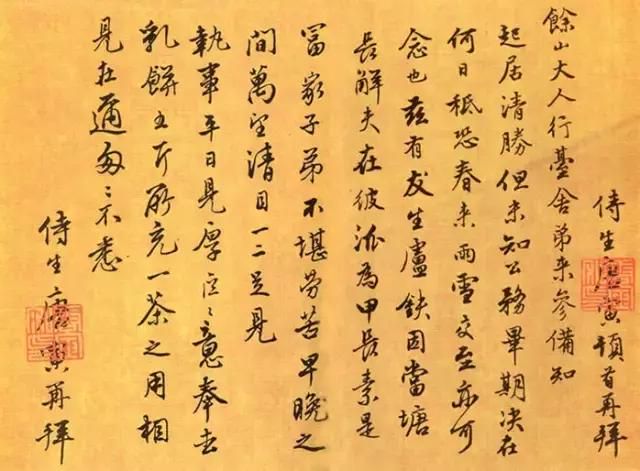 侍生唐寅頓首再拜
餘山大人行臺舍弟来参備知
起居清勝但未知公務畢期决在
何日秪恐春来雨雪交至亦可
念也兹有友生盧鈇因當塘
長解夫在彼派為甲長素是
富家子弟不堪劳苦早晚之
間萬望清目一二足見
執事平日見厚區〻意奉去
乳餅五斤所充一茶之用相
見在邇匆〻不悉
侍生唐寅再拜